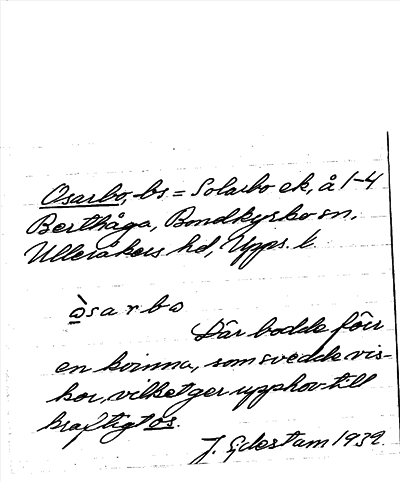 Osarbo, bs = Solarbo ek, å 1-4
Berthåga, Bondkyrko sn,
Ulleråkers hd, Upps. l.
ò̲sarbo
Där bodde förr
en kvinna, som svedde vis-
kor, vilket ger upphov till
kraftigt os.
J. Gdestam 1932.